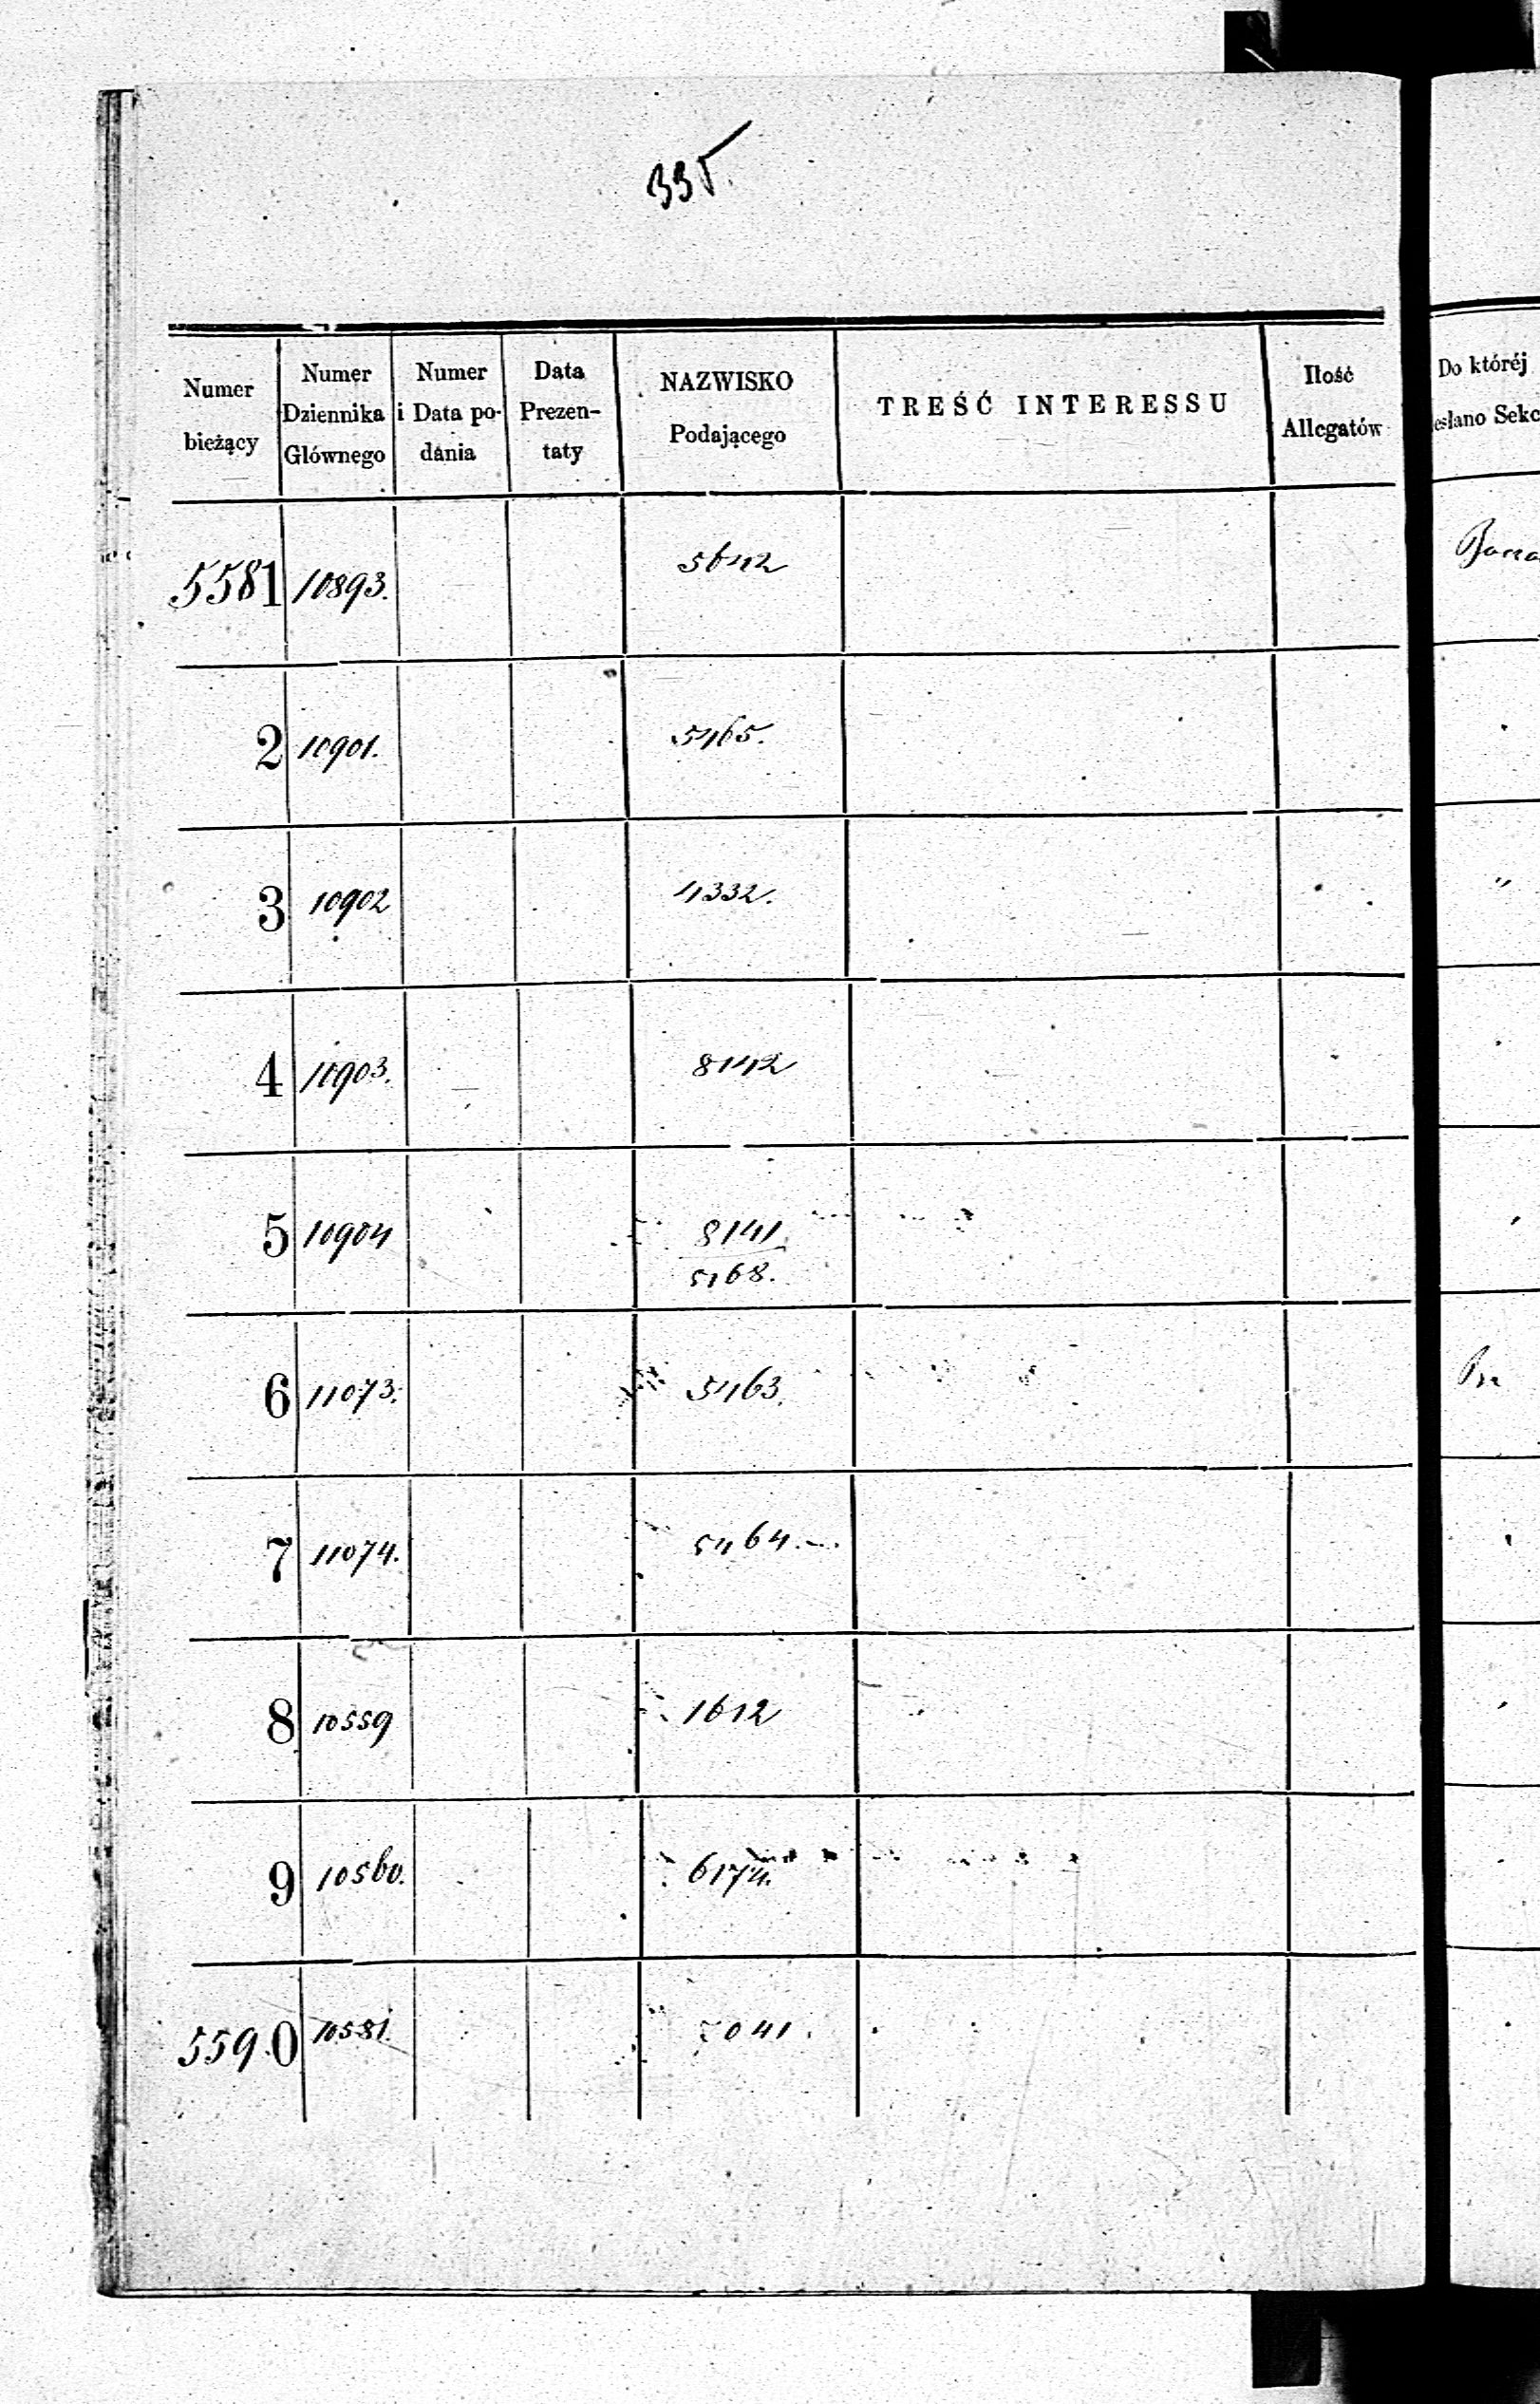 335.
Numer bieżący
Numer Dziennika Głównego
Numer i Data podania
Data Prezentaty
NAZWISKO Podającego
TREŚĆ INTERESSU
Ilość Allegatów
Do któréj
esłano Sekc
5581 10893. 5642
2 10901. 5465.
3 10902 4332.
4 10903. 8142
5 10904 8141
5168.
6 11073. 5463.
7 11074. 5464.
8 10559 1612
9 10560. 6174.
5590 10581. 7041.